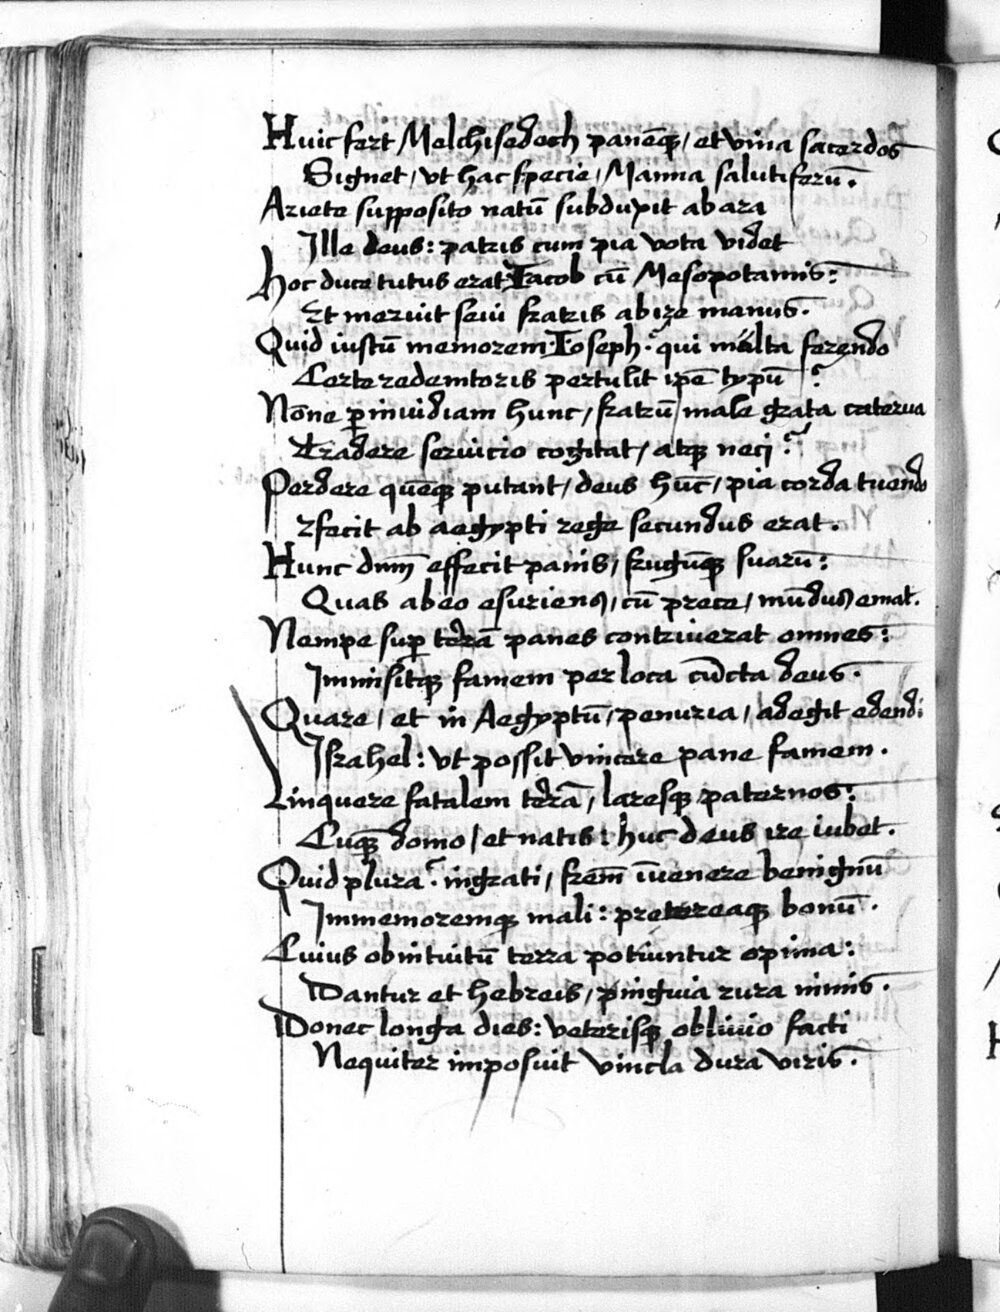 Huic fert Melchisedech panēqꝫ / et vina sacerdos
Signet / vt hac specie / Manna salutiferū .
Ariete supposito natū subduxit ab ara
Ille deus : patris cum pia vota videt
Hoc duce tutus erat Iacob cū Mesopotamis :
Et meruit seui fratris abire manus .
Quid iustū memorem Ioseph ? qui multa ferendo
Certe redemtoris pertulit ipē typū ?
Nōne ꝑ inuidiam hunc / fratrū male grata caterua
Tradere seruicio cogitat / atqꝫ neci ?
Perdere quēqꝫ putant / deus hūc / pia corda tuendo
Efecit ab aegypti rege secundus erat .
Hunc dnm̄ effecit panis / frugūqꝫ suarū :
Quas ab eo esuriens / cū prece / mūdus emat .
Nempe suꝑ terā panes contriuerat omnes :
Immisitqꝫ famem per loca cūcta deus .
Quare / et in Aegyptū / penuria / adegit edendi
Israhel : vt possit vincere pane famem .
Linquere fatalem terā / laresqꝫ paternos :
Cuqꝫ domo / et natis : huc deus ire iubet .
Quid plura ? ingrati / frēm īuenere benignū
Immemoremqꝫ mali : pretereaqꝫ bonū .
Cuius ob intuitū terra potiuntur opima :
Dantur et hebreis / pinguia rura nimis .
Donec longa dies : veterisqꝫ obliuio facti
Nequiter imposuit vincla dura viris .